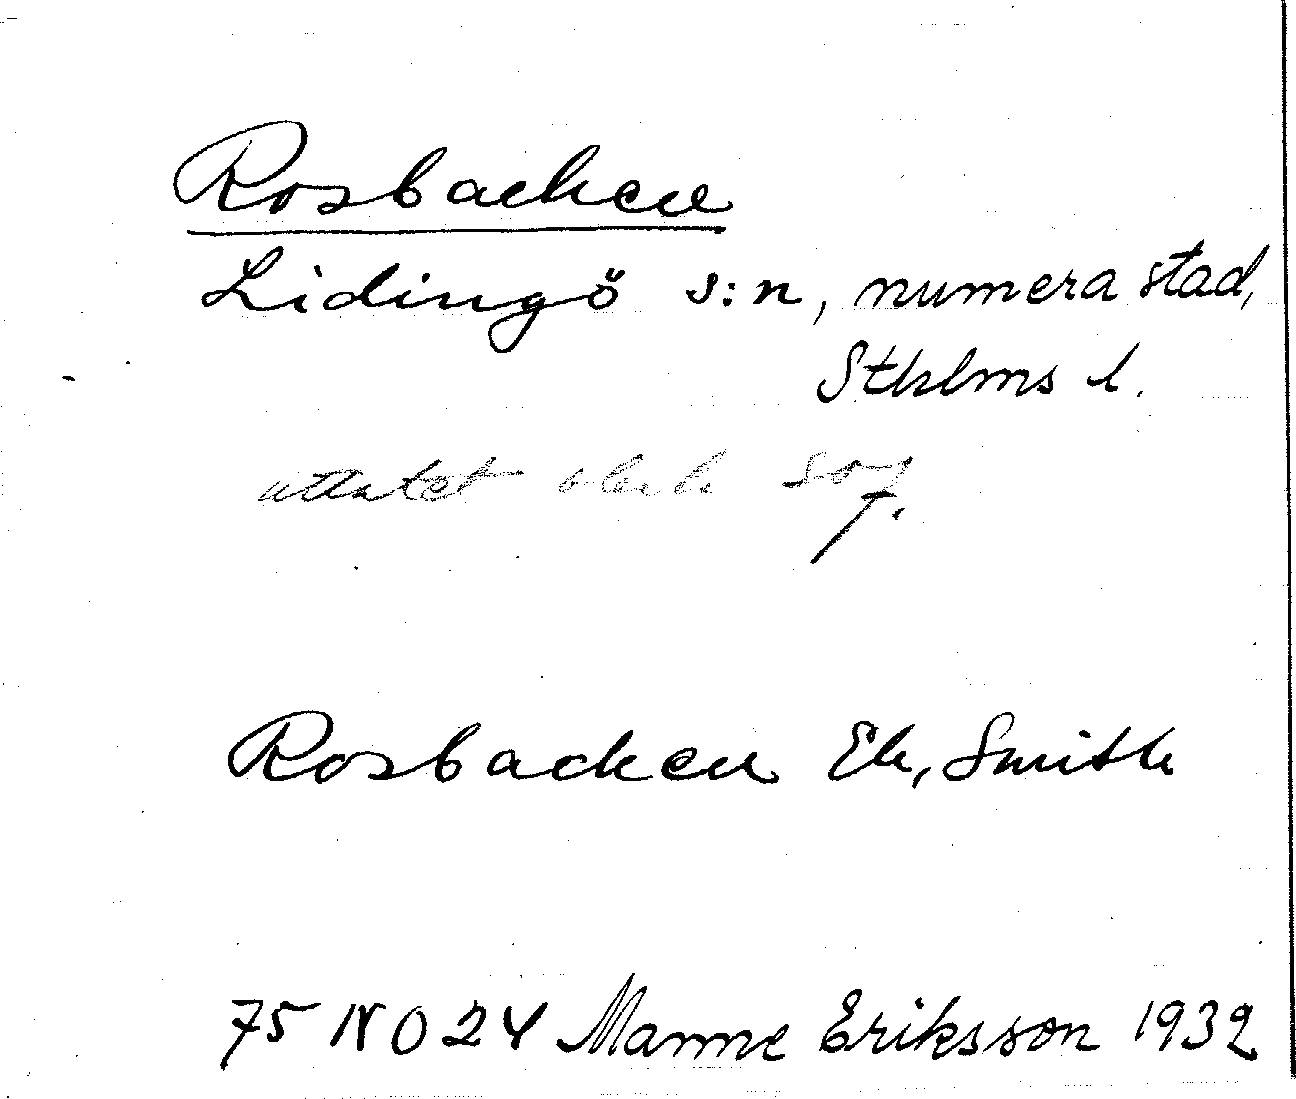 Rosbacken
Lidingö s:n, numera stad,
Sthlms l.
uttalet
Rosbacken Ek, Smith
75 NO 24 Manne Eriksson 1932